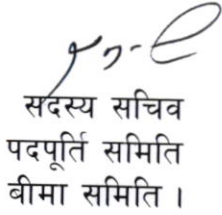 सदस्य सचिव
पदपूर्ति समिति
बीमा समिति ।